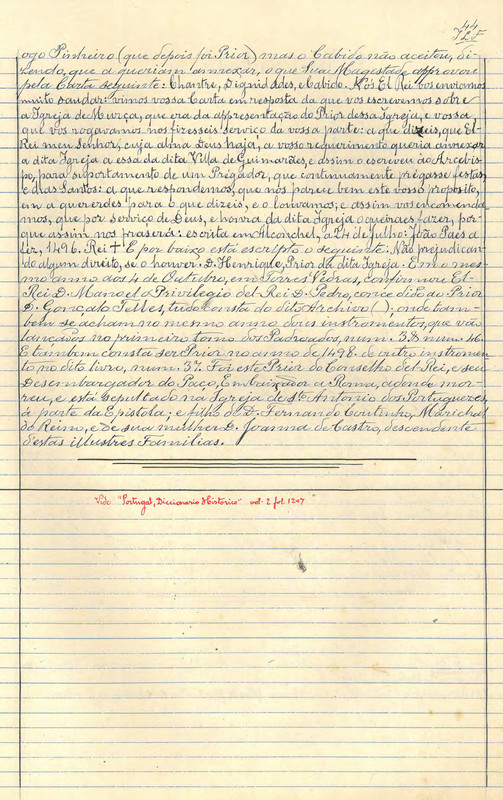 44
ogo Pinheiro (que depois foi Prior) mas o Cabido não aceitou, di-
zendo, que a queriam annexar, o que Sua Magestade approvou
pela Carta seguinte: Chantre, Dignidades, e Cabido. Nós El Rei vos enviamos
muito saudar: vimos vossa Carta em resposta da que vos escrevemos sobre
a Igreja de Murça, que era da appresentação do Prior dessa Igreja, e vossa,
que vos rogavamos nos fizesseis serviço da vossa parte: a que dizeis, que El-
Rei meu Senhor, cuja alma Deus haja, a vosso requerimento queria annexar
a dita Igreja a essa da dita Villa de Guimarães, e assim o escreveu ao Arcebis-
po, para suportamento de um Prégador, que continuamente prégasse festas,
e dias Santos: a que respondemos, que nos parece bem este vosso proposito,
em a quererdes para o que dizeis, e o louvamos; e assim vos encomenda-
mos, que por serviço de Deus, e honra da dita Igreja o queiraes fazer, por-
que assim nos praserá: escrita em Alcochel, a 24 de Julho: João Paes a
fez, 1496. Rei † E por baixo está escripto o seguinte: Não prejudican-
do algum direito, se o houver. D. Henrique, Prior da dita Igreja. Em o mes-
mo anno aos 4 de Outubro, em Torres Vedras, confirmou El-
Rei D. Manoel o Privilegio del-Rei D. Pedro, concedido ao Prior
D. Gonçalo Telles, tudo consta do dito Archivo (), onde tam-
bem se acham no mesmo anno dois instrumentos, que vão
lançados no primeiro tomo dos Padroados, num. 38 num. 46.
E tambem consta ser Prior no anno de 1498 de outro instrumen-
to no dito livro, num. 37. Foi este Prior do Conselho del Rei, e seu
Desembargador do Paço, Embaixador a Roma, aonde mor-
reu, e está sepultado na Igreja de Sto Antonio dos Portuguezes,
á parte da Epistola; e filho de D. Fernando Coutinho, Marichal
do Reino, e De sua mulher D. Joanna de Castro, descendente
destas illustres Familias.
Vide "Portugal, Diccionario Historico" vol. 2 fol. 1207